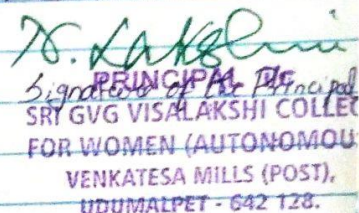 N. Lakshmi
Signature of the Principal
PRINCIPAL I/C
SRI GVG VISALAKSHI COLLEG
FOR WOMEN (AUTONOMOU
VENKATESA MILLS (POST),
UDUMALPET - 642 128.